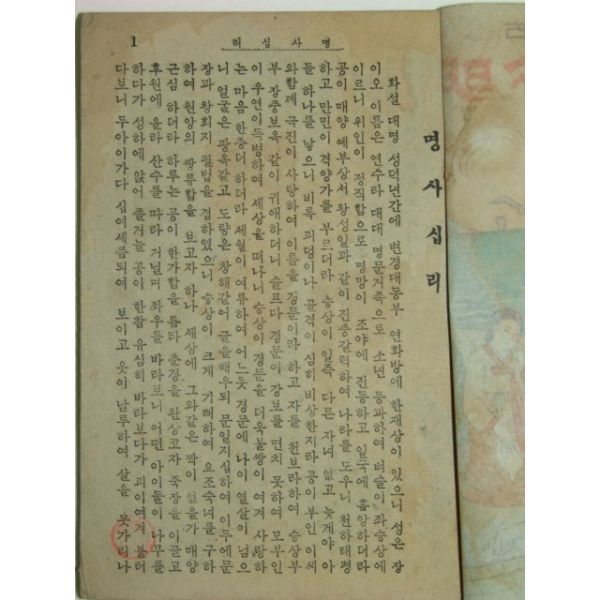 리십사명
1
명사십리
화설 대명 성덕년간에 변경대동부 연화방에 한재상이 있으니 성은 장
이오 이름은 연수라 대대 명문거족으로 소년 등과하여 벼슬이 좌승상에
이르니 위인이 정직함으로 명망이 조야에 진동하고 일국에 흡앙하더라
공이 매양 예부상서 왕성일과 같이 진중갈력하여 나라를 도우니 천하태평
하고 만민이 격양가를 부르더라 승상이 일즉 다른 자녀 없고 늦게야 아
들 하나를 낳으니 비록 괴덩이나 골격이 심히 비상한지라 공이 부인 이씨
와 함께 극진이 사랑하여 이름을 경문이라 하고 자를 천보라하여 승상부
부 장중보옥같이 귀애하더니 슬프다 경문이 강보를 면치 못하여 모부인
이 우연이득병하여 세상을 떠나니 승상이 경문을 더욱불쌍이 여겨 사랑하
는 마음 한층더 하더라 세월이 여류하여 어느듯 경문에 나이 열살이 넘으
니 얼굴은 관옥같고 도량은 창해같어 글을배우되 문일지십하여 이두에문
장과 왕희지 필법을 겸하였으니 승상이 크게 기뻐하여 요조숙녀를 구하
하여 원앙의 쌍류합을 보고자 하나 세상에 그와같은 짝이 없을가 매양
근심 하더라 하루는 공이 한가함을 틈타 춘광을 완상코자 죽장을 이끌고
후원에 올라 산수를 따라 거닐며 좌우를 바라보니 어떤 아이들이 나무를
하다가 성하에 앉어 졸거늘 공이 한참 유심히 바라보다가 괴이여겨 불러
다보니 두아이가다 십여세쯤되여 보이고 옷이 남루하여 살을 못가리나